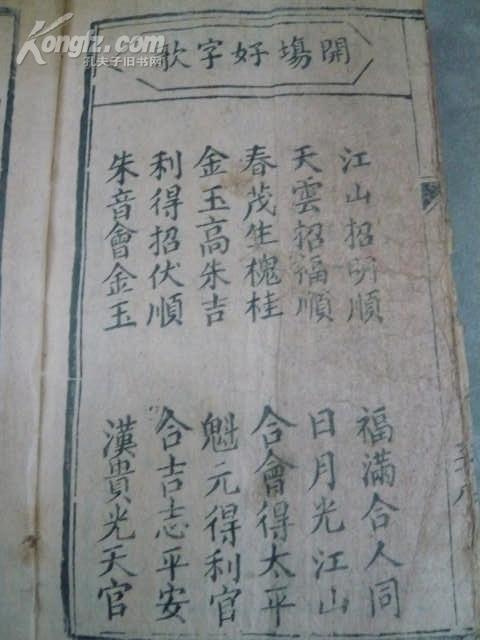 Kongfz.com
孔夫子旧书网
開塲好字歌
江山招明順
福滿合人同
天雲招福順
日月光江山
春茂生槐桂
合會得太平
金玉高朱吉
魁元得利官
利得招伏順
合吉志平安
朱音會金玉
漢貴光天官